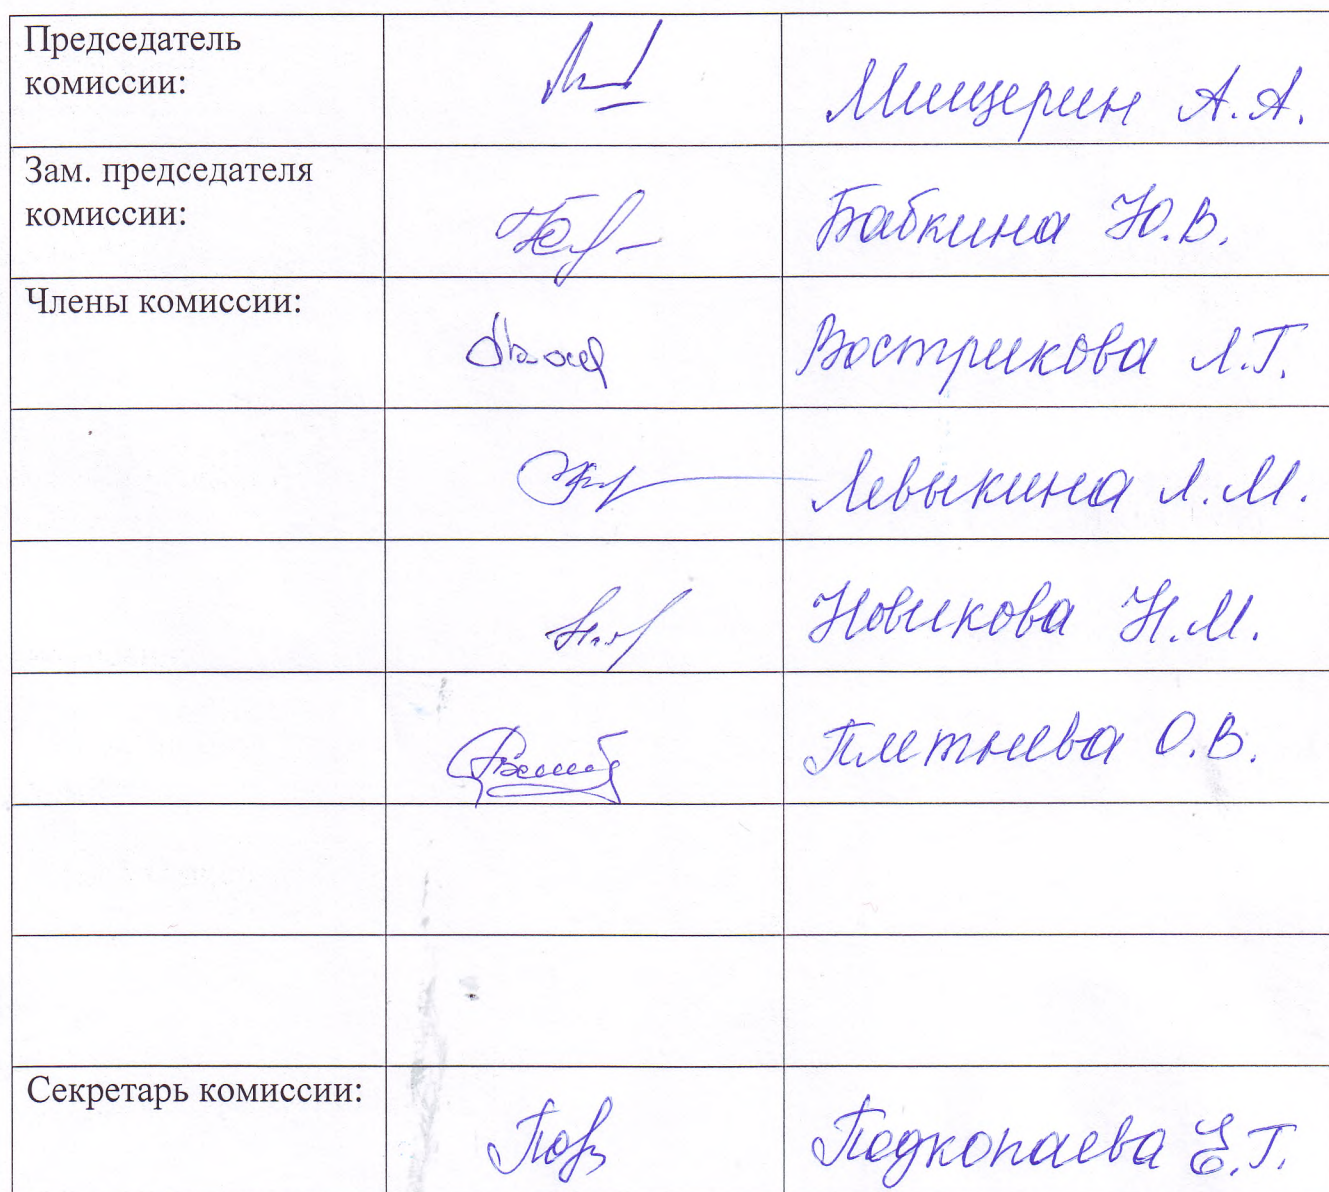 Председатель
комиссии:
Мищерин А.А.
Зам. председателя
комиссии:
Бабкина Ю.В.
Члены комиссии:
Вострикова Л.Г.
Левыкина Л.М.
Новикова Н.М.
Плетнева О.В.
Секретарь комиссии:
Подкопаева Е.Г.